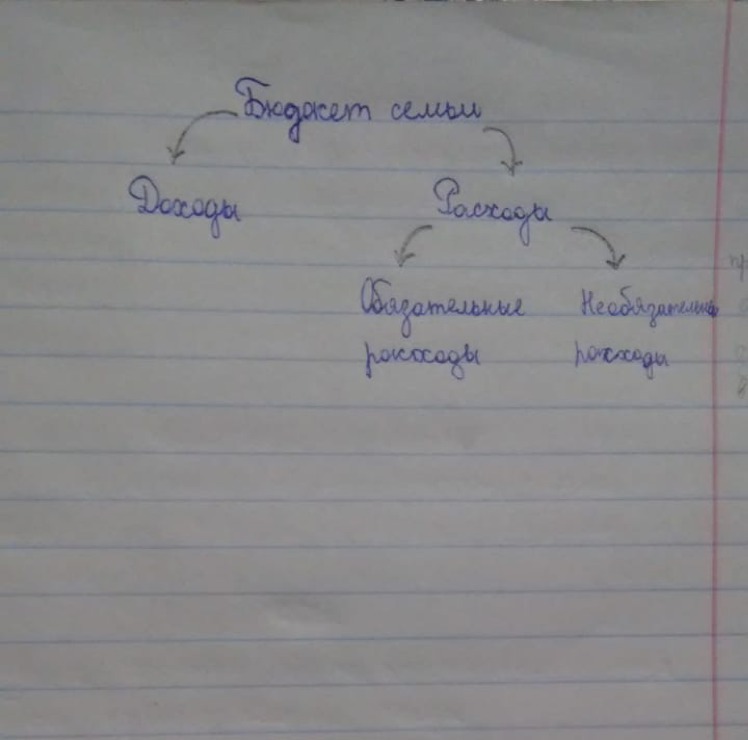 Бюджет семьи
Доходы Расходы
Обязательные Необязательные
расходы расходы